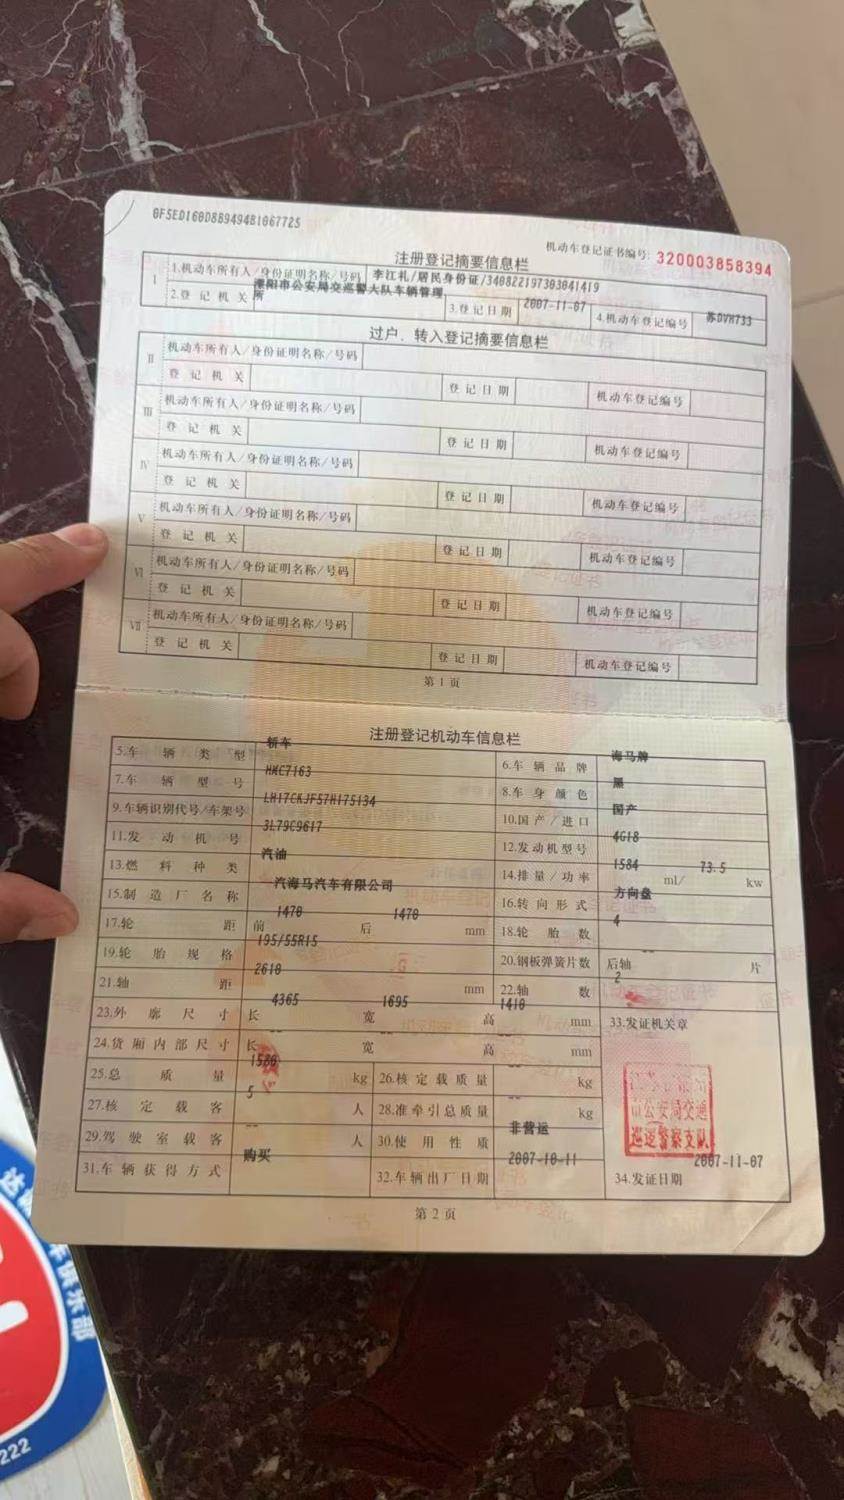 0F5ED160D8B9494B1067725
机动车登记证书编号: 320003858394
注册登记摘要信息栏
I 1.机动车所有人/身份证明名称/号码 李江礼/居民身份证/340822197303041419
2.登记机关 溧阳市公安局交巡警大队车辆管理所 3.登记日期 2007-11-07 4.机动车登记编号 苏DVM733
过户、转入登记摘要信息栏
II 机动车所有人/身份证明名称/号码
登记机关 登记日期 机动车登记编号
III 机动车所有人/身份证明名称/号码
登记机关 登记日期 机动车登记编号
IV 机动车所有人/身份证明名称/号码
登记机关 登记日期 机动车登记编号
V 机动车所有人/身份证明名称/号码
登记机关 登记日期 机动车登记编号
VI 机动车所有人/身份证明名称/号码
登记机关 登记日期 机动车登记编号
VII 机动车所有人/身份证明名称/号码
登记机关 登记日期 机动车登记编号
第1页
注册登记机动车信息栏
5.车辆类型 轿车 6.车辆品牌 海马牌
7.车辆型号 HMC7163 8.车身颜色 黑
9.车辆识别代号/车架号 LH17CKJF57H175134 10.国产/进口 国产
11.发动机号 3L79C9617 12.发动机型号 4G18
13.燃料种类 汽油 14.排量/功率 1584 ml/ 73.5 kw
15.制造厂名称 一汽海马汽车有限公司 16.转向形式 方向盘
17.轮距 前 1470 后 1470 mm 18.轮胎数 4
19.轮胎规格 195/55R15 20.钢板弹簧片数 后轴 -- 片
21.轴距 2610 mm 22.轴数 2
23.外廓尺寸 长 4365 宽 1695 高 1410 mm 33.发证机关章
24.货厢内部尺寸 长 -- 宽 -- 高 -- mm
25.总质量 1580 kg 26.核定载质量 -- kg
27.核定载客 5 人 28.准牵引总质量 -- kg
市公安局交通
巡逻警察支队
29.驾驶室载客 -- 人 30.使用性质 非营运
31.车辆获得方式 购买 32.车辆出厂日期 2007-10-11 34.发证日期 2007-11-07
第2页
车俱乐部
222